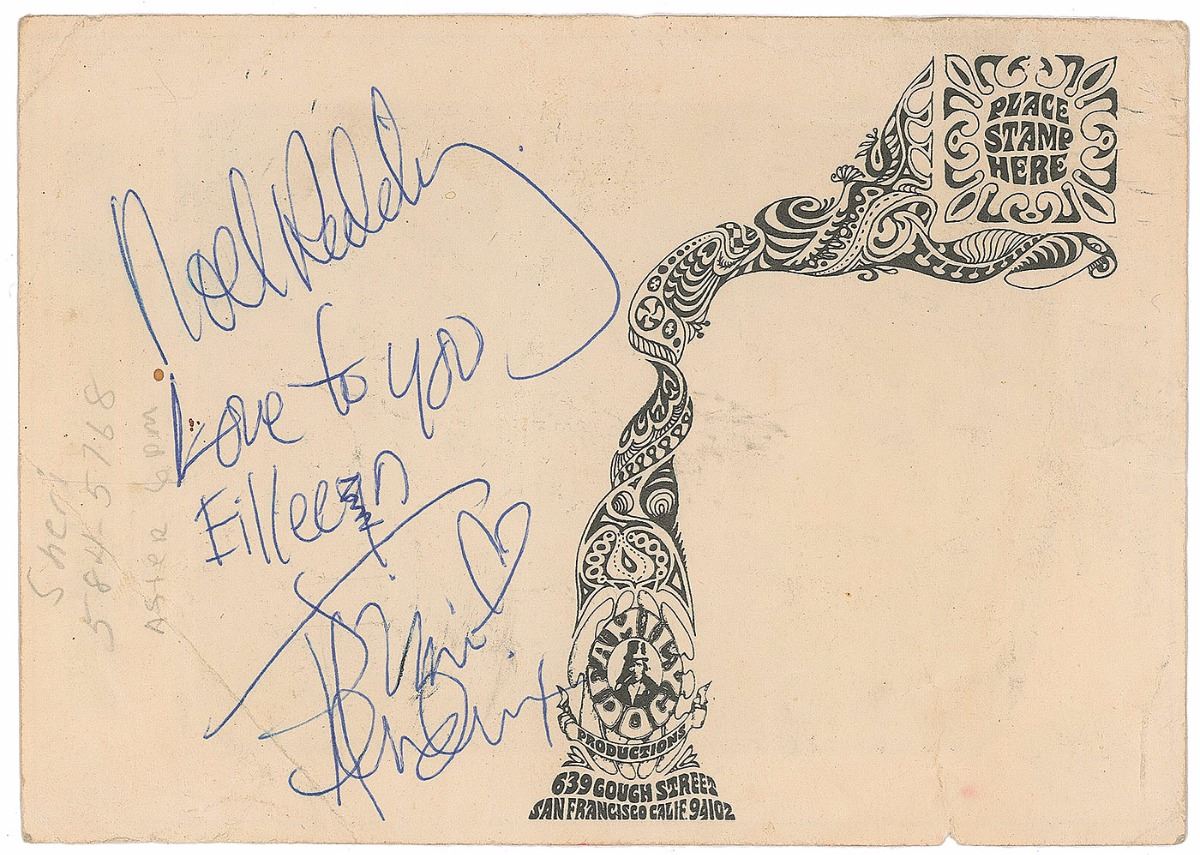 Noel Redding
Love to you
Eilleen
Jimi
Hendrix
Sheri
584-5768
AFTER 6 pm
PLACE
STAMP
HERE
FAMILY
DOG
PRODUCTIONS
639 GOUGH STREET
SAN FRANCISCO CALIF. 94102